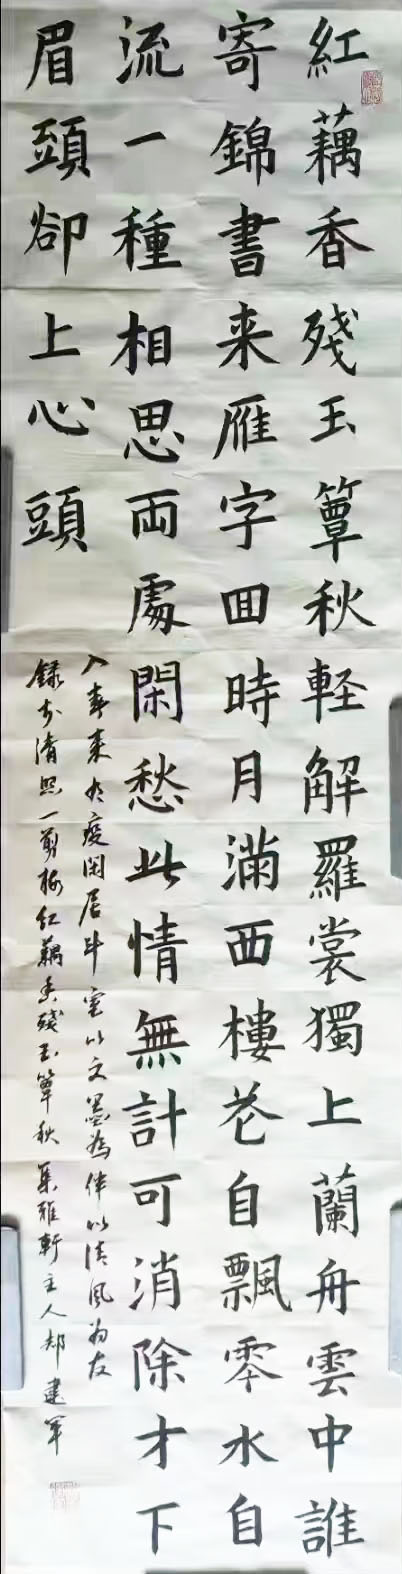 紅藕香殘玉簟秋軽解羅裳獨上蘭舟雲中誰
寄錦書来雁字回時月滿西樓花自飄零水自
流一種相思両處閑愁此情無計可消除才下
眉頭卻上心頭
入春来為疫困居斗室以文墨為伴以清風為友
録李清照一剪梅红藕香殘玉簟秋集雅軒主人郝建军